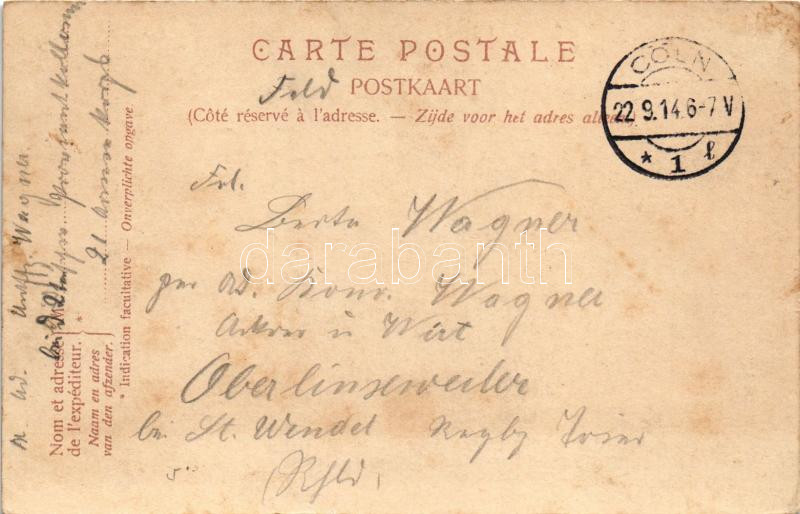 CARTE POSTALE
Feld POSTKAART
(Côté réservé à l'adresse. — Zijde voor het adres alleen)
CÖLN
22.9.14.6-7V
* 1 l
Frl.
Berta Wagner
per Ad. Konr. Wagner
Ackrer u Wirt
Oberlinxweiler
bei St. Wendel Regbz Trier
(Rhld)
Ad. Wagner
21
Proviantkolonne
21 Armee Korps
Nom et adresse
de l'expéditeur.
Naam en adres
van den afzender.
* Indication facultative — Onverplichte opgave
darabanth